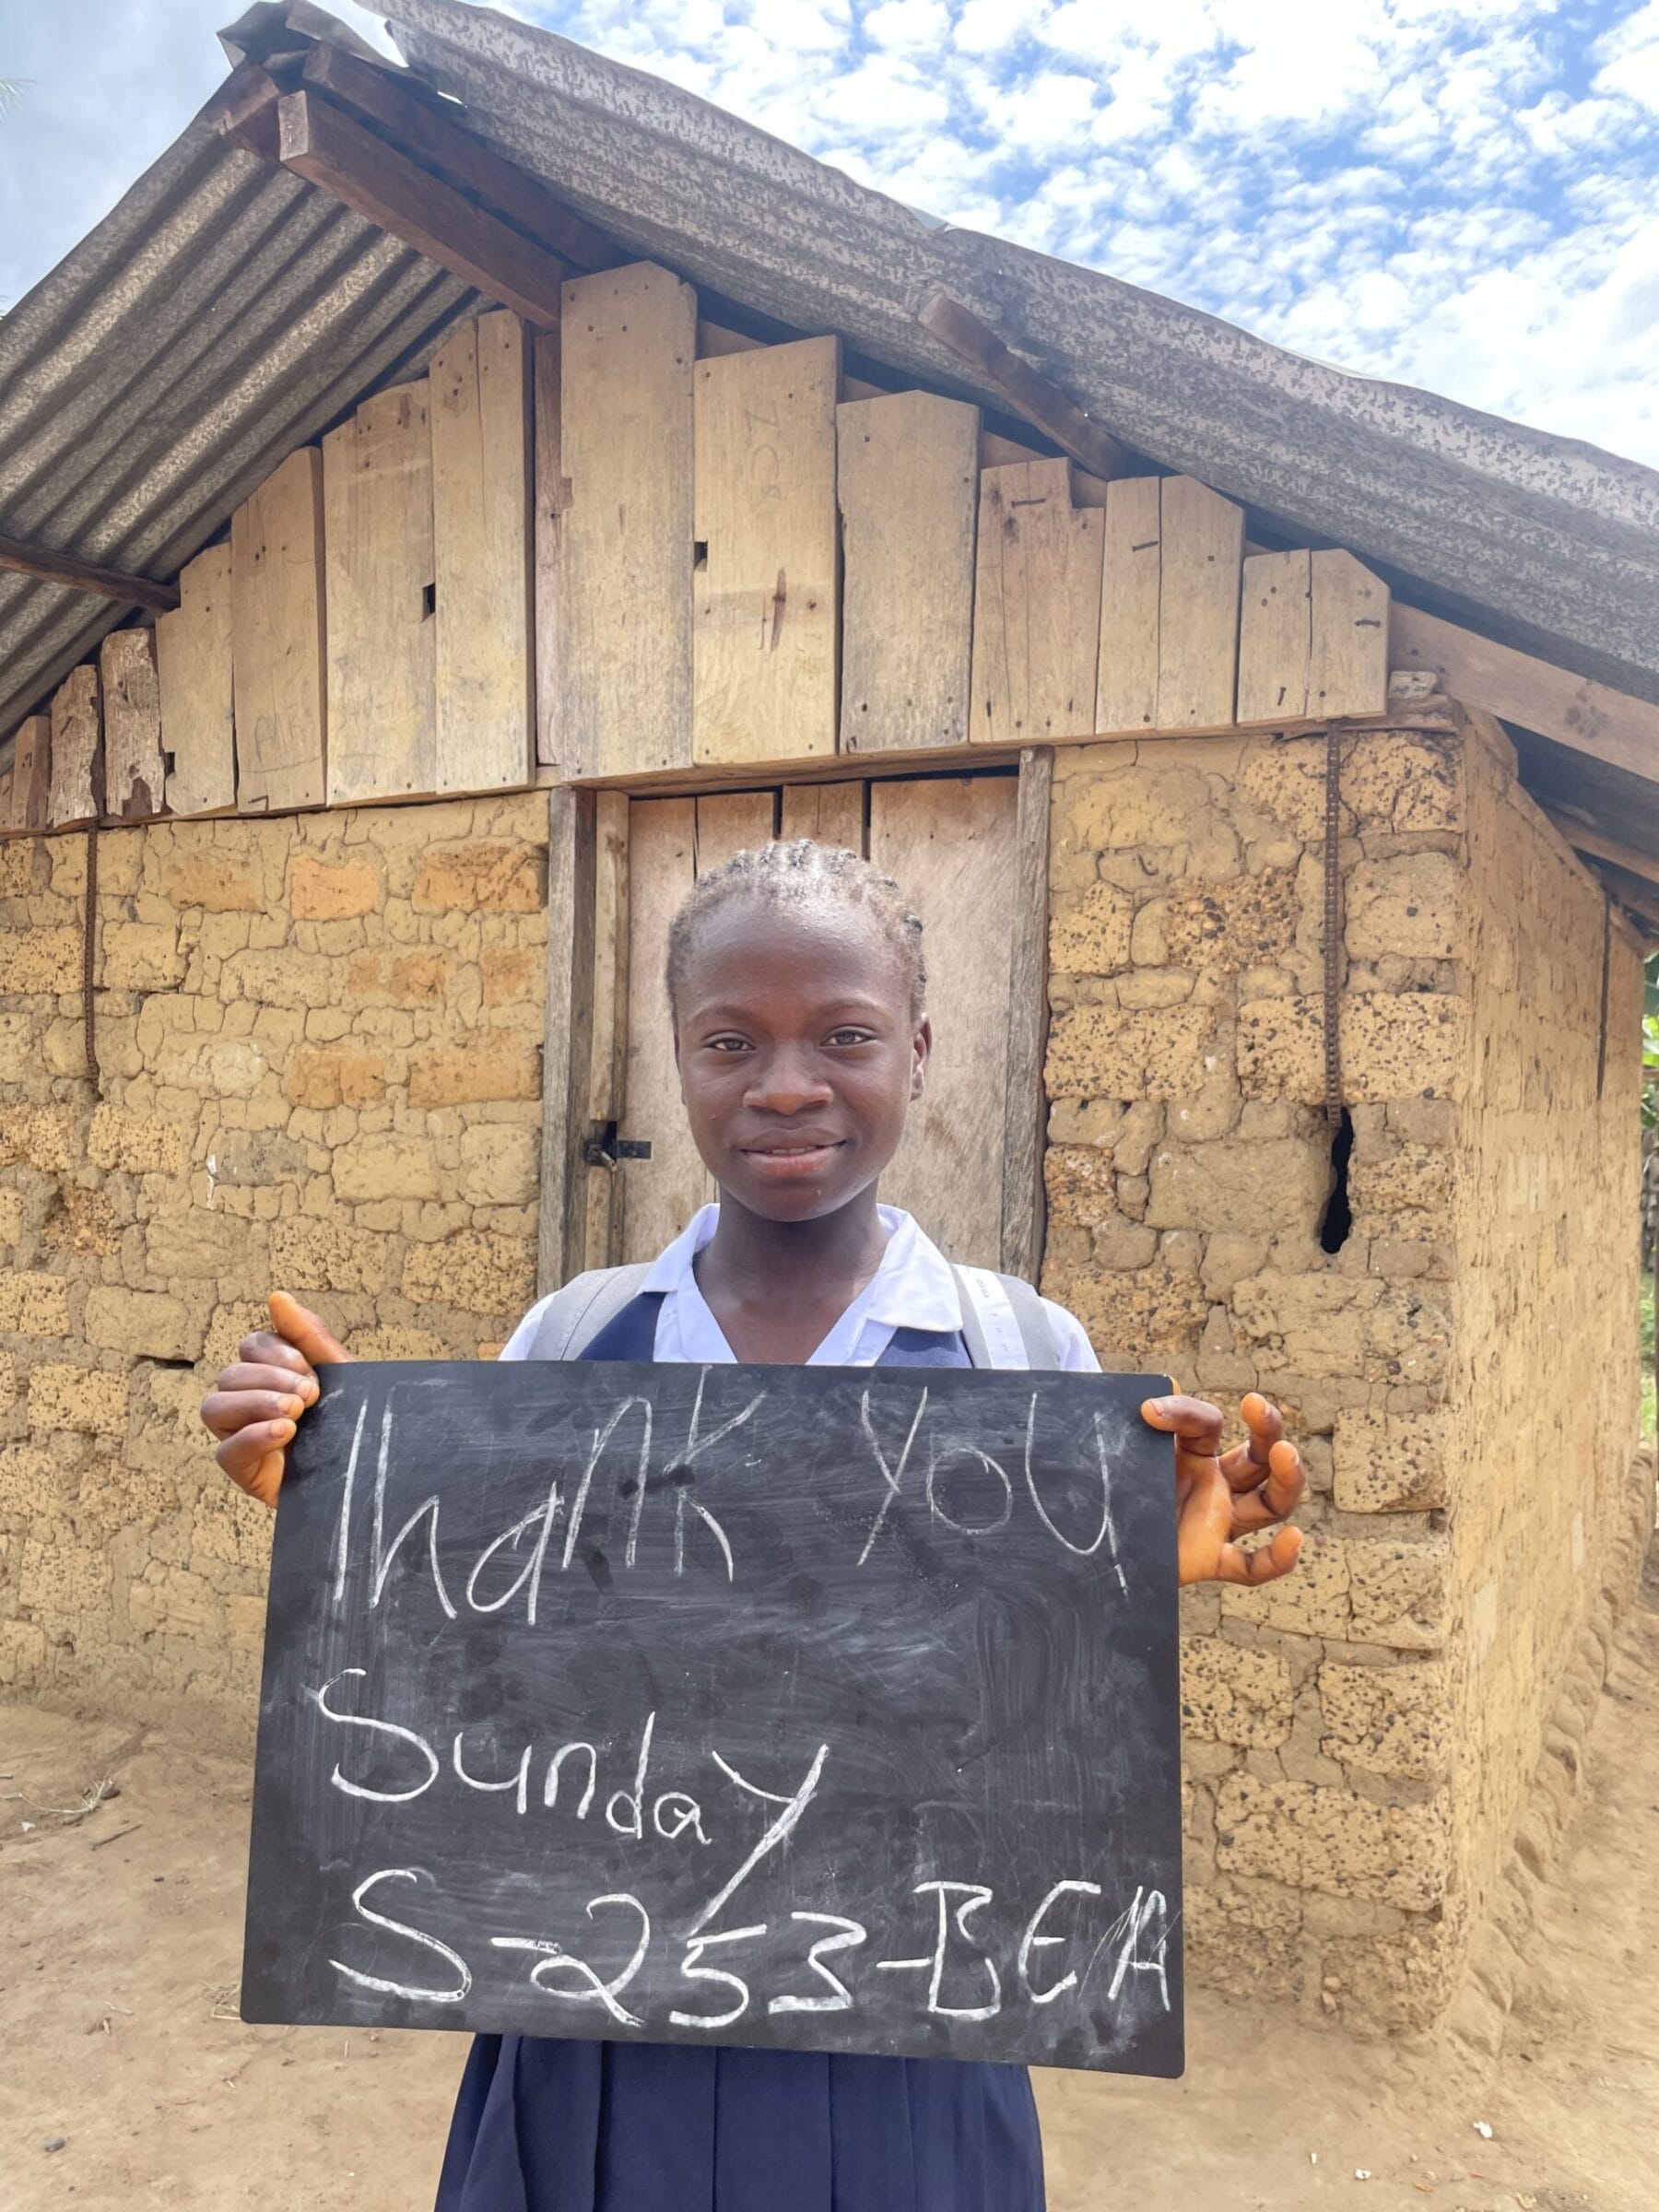 Thank you
Sunday
S-253-BEA